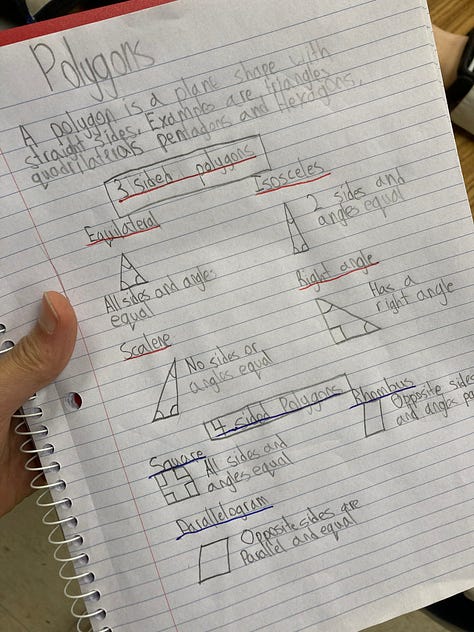 Polygons
A polygon is a plane shape with
straight sides. Examples are triangles
quadrilaterals pentagons and Hexagons.
3 siden polygons
Equilateral
All sides and angles
equal
Isosceles
2 sides and
angles equal
Scalene
No sides or
angles equal
Right angle
Has a
right angle
4 sided Polygons
Square
All sides and
angles equal
Rhombus
Opposite sides
and angles
Parallelogram
Opposite sides are
Parallel and equal